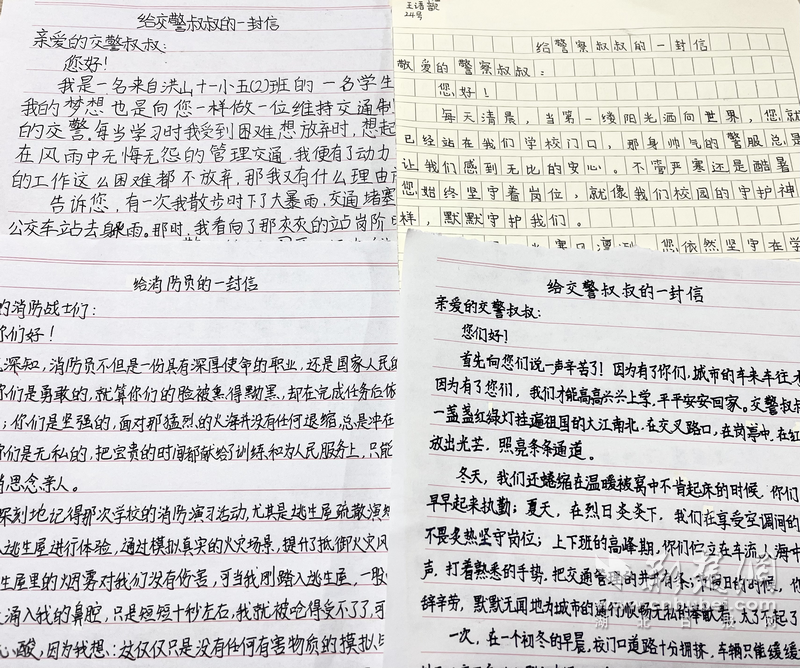 给交警叔叔的一封信
亲爱的交警叔叔：
您好！
我是一名来自洪山十一小五(2)班的一名学生
我的梦想也是向您一样做一位维持交通制
的交警,每当学习时我受到困难想放弃时,想起
在风雨中无悔无怨的管理交通,我便有了动力
的工作这么困难都不放弃,那我又有什么理由
告诉您,有一次我散步时下了大暴雨,交通堵塞
公交车立占去躲雨。那时,我看向了那夹夹的立占岗阶
王语靓
24号
给警察叔叔的一封信
敬爱的警察叔叔：
您好！
每天清晨，当第一缕阳光洒向世界，您就
已经站在我们学校门口，那身帅气的警服总是
让我们感到无比的安心。不管严寒还是酷暑
您始终坚守着岗位，就像我们校园的守护神
样，默默守护我们。
您依然坚守在学
给消防员的一封信
的消防战士们：
你们好！
深知,消防员不但是一份具有深厚使命的职业,还是国家人民的
你们是勇敢的,就算你们的脸被熏得黝黑,却在完成任务后
；你们是坚强的,面对那猛烈的火海并没有任何退缩,总是冲在
你们是无私的,把宝贵的时间都献给了训练和为人民服务上,只能
思念亲人。
深刻地记得那次学校的消防演习活动,尤其是逃生屋疏散演
逃生屋进行体验,通过模拟真实的火灾场景,提升了抵御火灾风
生屋里的烟雾对我们没有伤害,可当我刚踏入逃生屋,一股
涌入我的鼻腔,只是短短十秒左右,我就被呛得受不了了,可
酸,因为我想:这仅仅只是没有任何有害物质的模拟
给交警叔叔的一封信
亲爱的交警叔叔:
您们好!
首先向您们说一声辛苦了！因为有了你们,城市的车来车往
因为有了您们,我们才能高高兴兴上学,平平安安回家。交警叔叔
一盏盏红绿灯挂遍祖国的大江南北,在交叉路口,在岗亭中,在红
放出光芒,照亮条条通道。
冬天,我们还蜷缩在温暖被窝中不肯起床的时候,你们
早早起来执勤；夏天,在烈日炎炎下,我们在享受空调间的
不畏炙热坚守岗位；上下班的高峰期,你们伫立在车流人海中
声,打着熟悉的手势,把交通管理的井井有条；不同日的
辞辛劳,默默无闻地为城市的通行顺畅无私
一次,在一个初冬的早晨,校门口道路十分拥挤,车辆只能缓缓